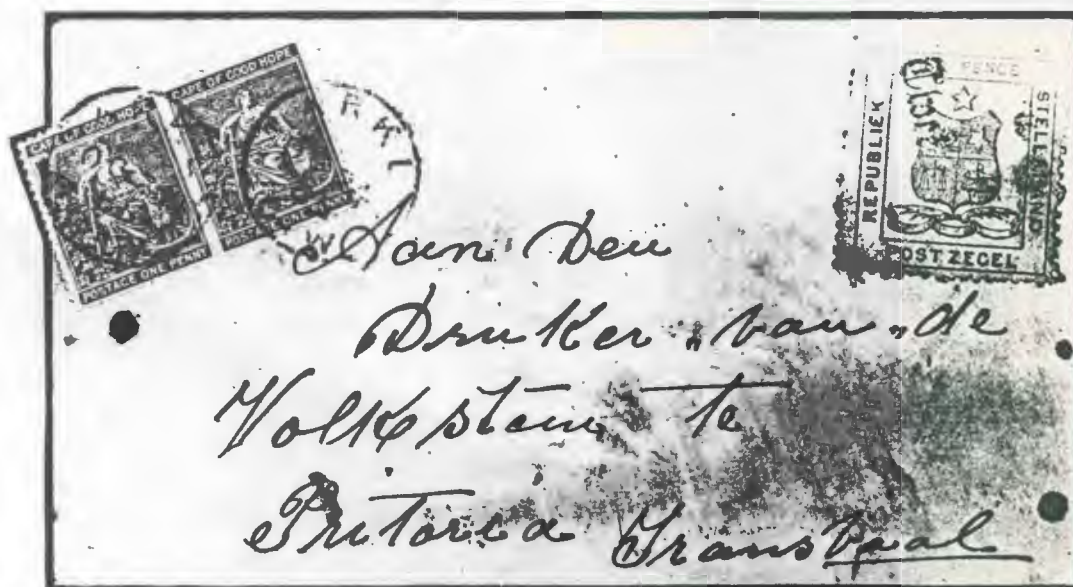 CAPE OF GOOD HOPE
POSTAGE ONE PENNY
CAPE OF GOOD HOPE
POSTAGE ONE PENNY
RKL
PENCE
REPUBLIEK
STELLALAND
POSTZEGEL
Aan Den
Druker "van" de
Volkstem te
Pritoria Transvaal